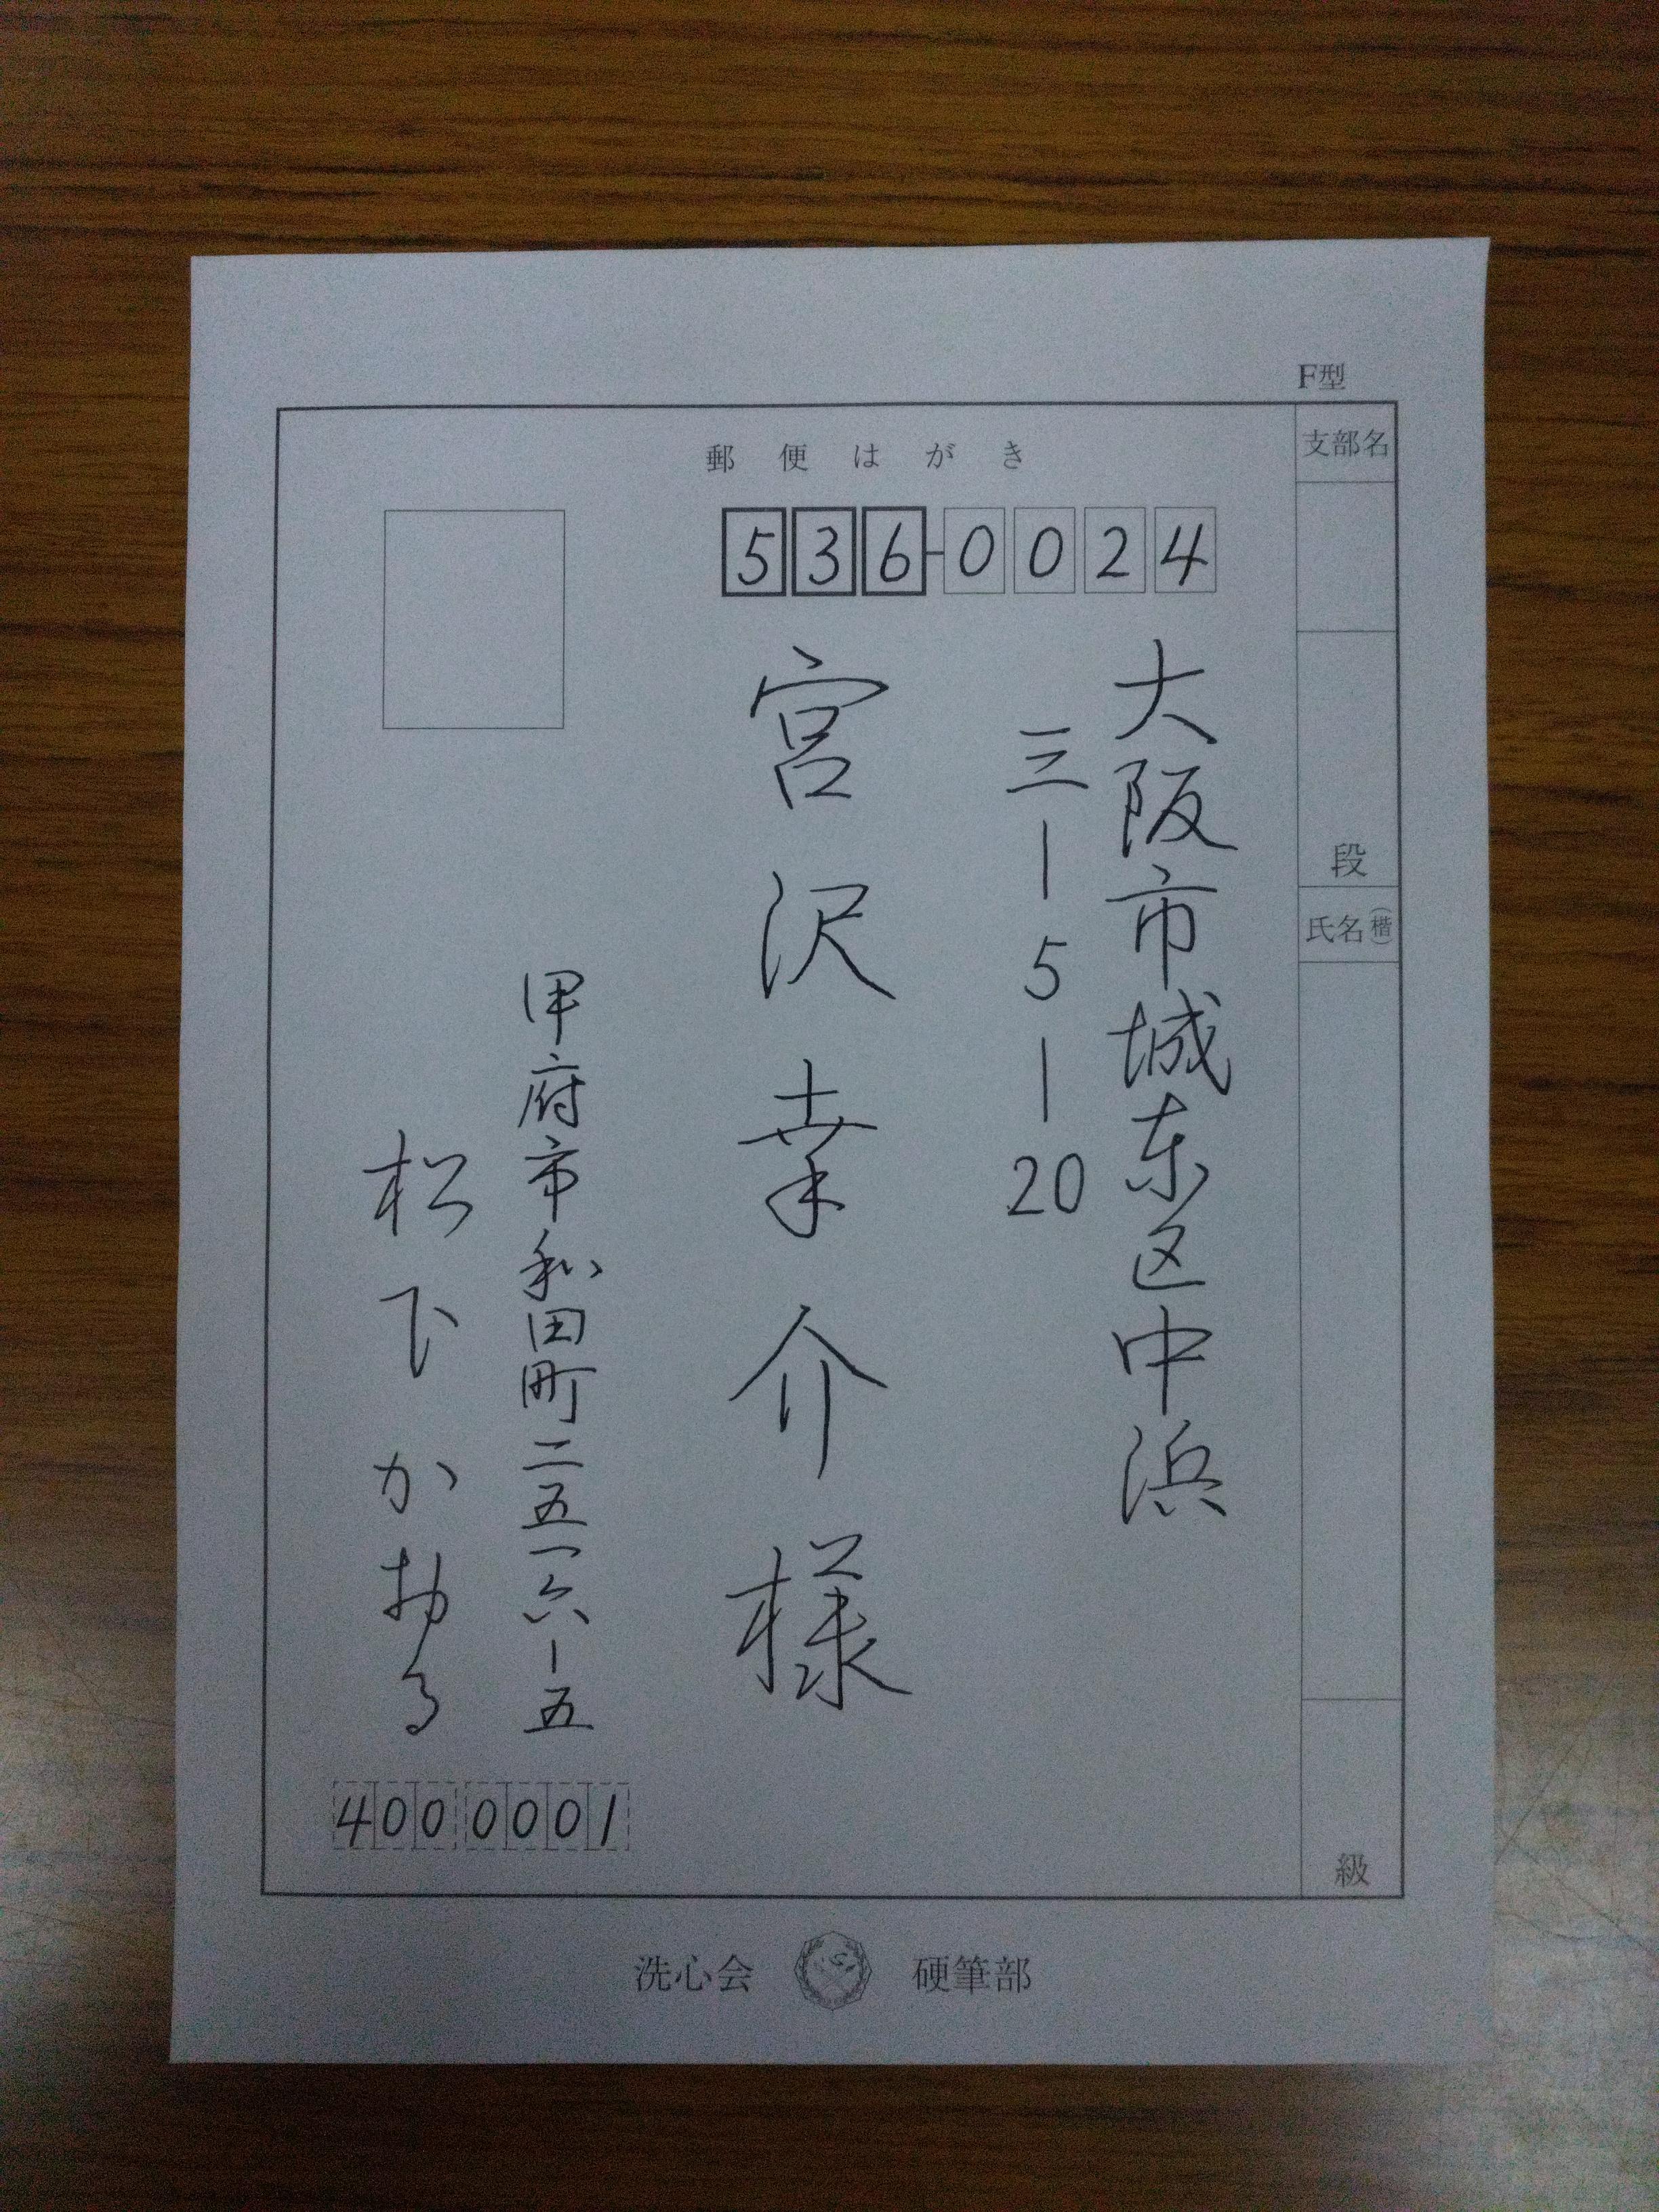 F型
支部名
段
氏名(楷)
級
郵便はがき
536-0024
大阪市城东区中浜
三ー5ー20
宮沢幸介様
甲府市和田町二五一六ー五
松下かおる
4000001
洗心会 硬筆部